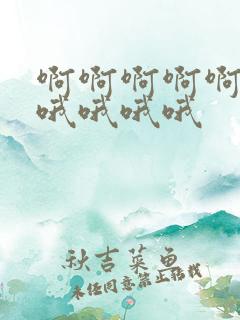 啊啊啊啊啊
哦哦哦哦
秋吉菜鱼
未经同意禁止转载